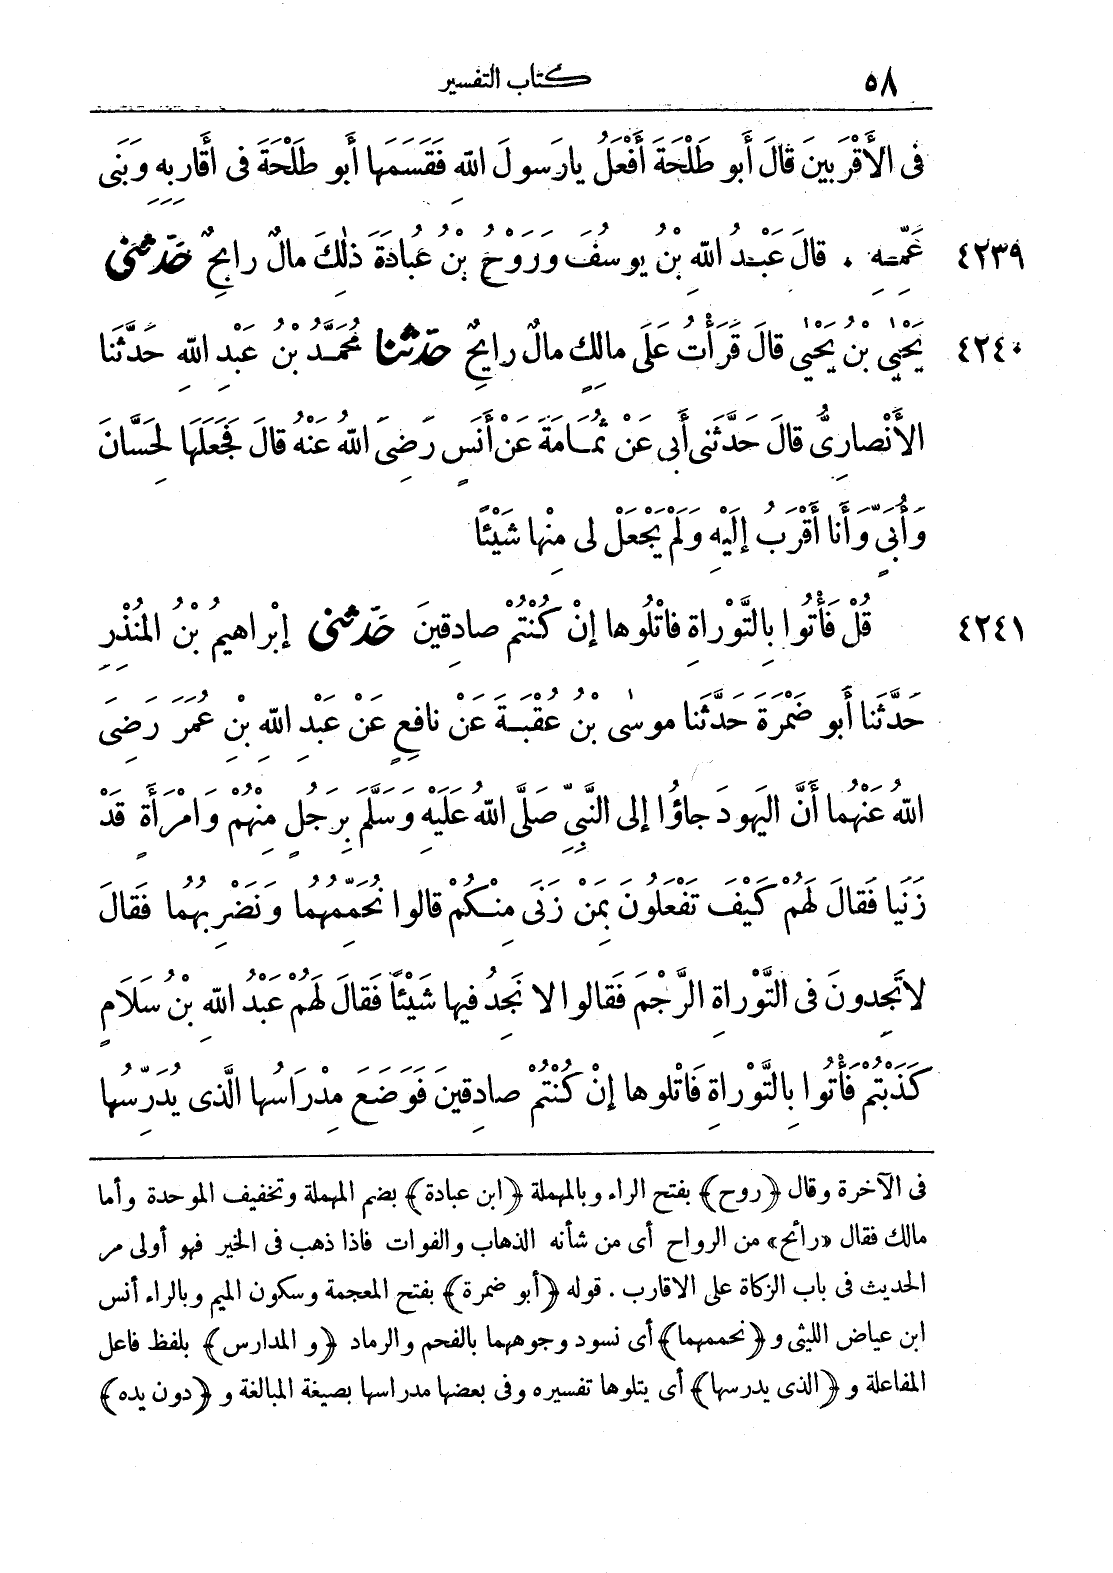 ٥٨ كتاب التفسير
فى الأَقْرَبِينَ قَالَ أَبو طَلْحَةَ أَفْعَلُ يارَسولَ اللهِ فَقَسَمَها أَبو طَلْحَةَ فى أَقارِبِهِ وَبَنِى
٤٢٣٩ عَمِّهِ . قالَ عَبْدُ اللهِ بْنُ يوسُفَ وَرَوْحُ بْنُ عُبادَةَ ذٰلِكَ مالٌ رابِحٌ حَدّثنى
٤٢٤٠ يَحْيٰى بْنُ يَحْيٰى قالَ قَرَأْتُ عَلَى مالِكٍ مالٌ رايِحٌ حَدّثنا مُحَمَّدُ بْنُ عَبْدِ اللهِ حَدَّثَنا
الأَنْصارِىُّ قالَ حَدَّثَنى أَبى عَنْ ثُمامَةَ عَنْ أَنَسٍ رَضِىَ اللهُ عَنْهُ قالَ فَجَعَلَها لِحَسَّانَ
وَأُبَىٍّ وَأَنا أَقْرَبُ إِلَيْهِ وَلَمْ يَجْعَلْ لى مِنْها شَيْئًا
٤٢٤١ قُلْ فَأْتُوا بِالتَّوْراةِ فاتْلُوها إِنْ كُنْتُمْ صادِقينَ حَدّثنى إِبْراهيمُ بْنُ المُنْذِرِ
حَدَّثَنا أَبو ضَمْرَةَ حَدَّثَنا موسٰى بْنُ عُقْبَةَ عَنْ نافِعٍ عَنْ عَبْدِ اللهِ بْنِ عُمَرَ رَضِىَ
اللهُ عَنْهُما أَنَّ اليَهودَ جاؤُا إِلى النَّبِىِّ صَلَّى اللهُ عَلَيْهِ وَسَلَّمَ بِرَجُلٍ مِنْهُمْ وَامْرَأَةٍ قَدْ
زَنَيا فَقالَ لَهُمْ كَيْفَ تَفْعَلُونَ بِمَنْ زَنَى مِنْكُمْ قالوا نُحَمِّمُهُما وَنَضْرِبُهُما فَقالَ
لاتَجِدونَ فى التَّوْراةِ الرَّجْمَ فَقالوا لا نَجِدُ فيها شَيْئًا فَقالَ لَهُمْ عَبْدُ اللهِ بْنُ سَلَامٍ
كَذَبْتُمْ فَأْتُوا بِالتَّوْراةِ فَاتْلوها إِنْ كُنْتُمْ صادِقينَ فَوَضَعَ مِدْرَاسُها الَّذى يُدَرِّسُها
فى الآخرة وقال ﴿روح﴾ بفتح الراء وبالمهملة ﴿ابن عبادة﴾ بضم المهملة وتخفيف الموحدة وأما
مالك فقال «رائح» من الرواح أى من شأنه الذهاب والفوات فاذا ذهب فى الخير فهو أولى مر
الحديث فى باب الزكاة على الاقارب . قوله ﴿أبو ضمرة﴾ بفتح المعجمة وسكون الميم وبالراء أنس
ابن عياض الليثى و﴿نحممهما﴾ أى نسود وجوههما بالفحم والرماد ﴿و المدارس﴾ بلفظ فاعل
المفاعلة و﴿الذى يدرسها﴾ أى يتلوها تفسيره وفى بعضها مدراسها بصيغة المبالغة و﴿دون يده﴾